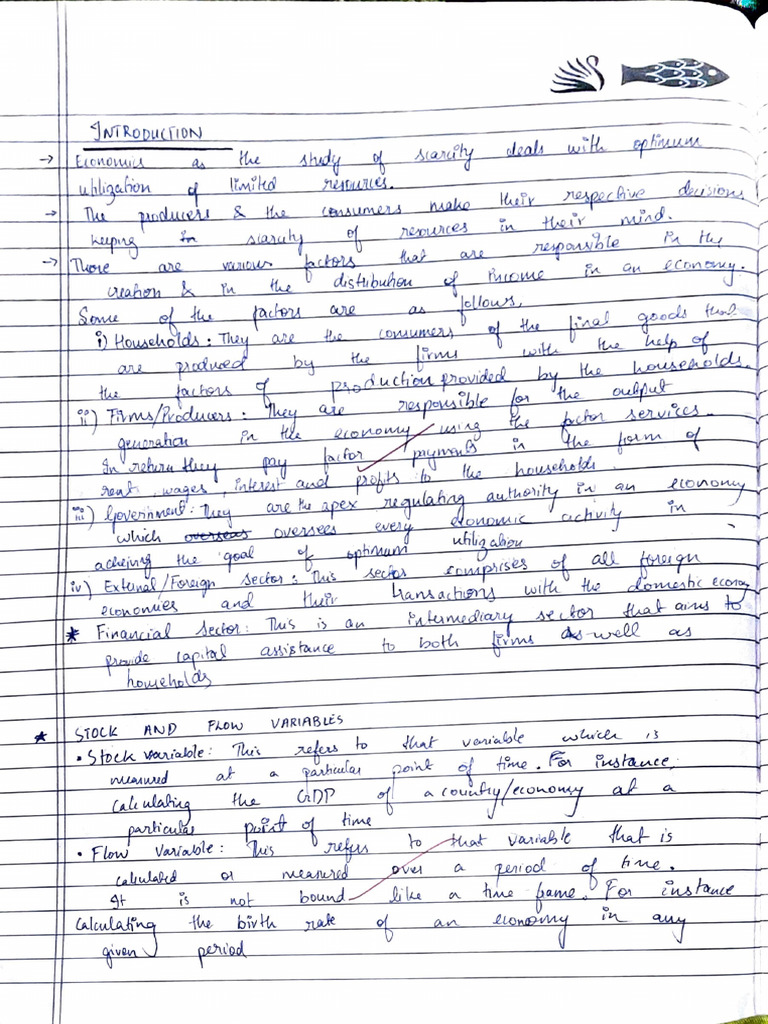 INTRODUCTION
→ Economics as the study of scarcity deals with optimum
utilization of limited resources.
→ The producers & the consumers make their respective decisions
keeping in scarcity of resources in their mind.
→ There are various factors that are responsible in the
creation & in the distribution of income in an economy.
Some of the factors are as follows.
i) Households: They are the consumers of the final goods that
are produced by the firms with the help of
the factors of production provided by the households.
ii) Firms/Producers: They are responsible for the output
generation in the economy using the factor services.
In return they pay factor payments in the form of
rent, wages, interest and profits to the households.
iii) Government: They are the apex regulating authority in an economy
which overseas oversees every economic activity in
acheing the goal of optimum utilization
iv) External/Foreign sector: This sector comprises of all foreign
economies and their transactions with the domestic economy
* Financial sector: This is an intermediary sector that aims to
provide capital assistance to both firms as well as
households
* STOCK AND FLOW VARIABLES
• Stock variable: This refers to that variable which is
measured at a particular point of time. For instance,
calculating the GDP of a country/economy at a
particular point of time
• Flow variable: This refers to that variable that is
calculated or measured over a period of time.
It is not bound like a time frame. For instance
calculating the birth rate of an economy in any
given period